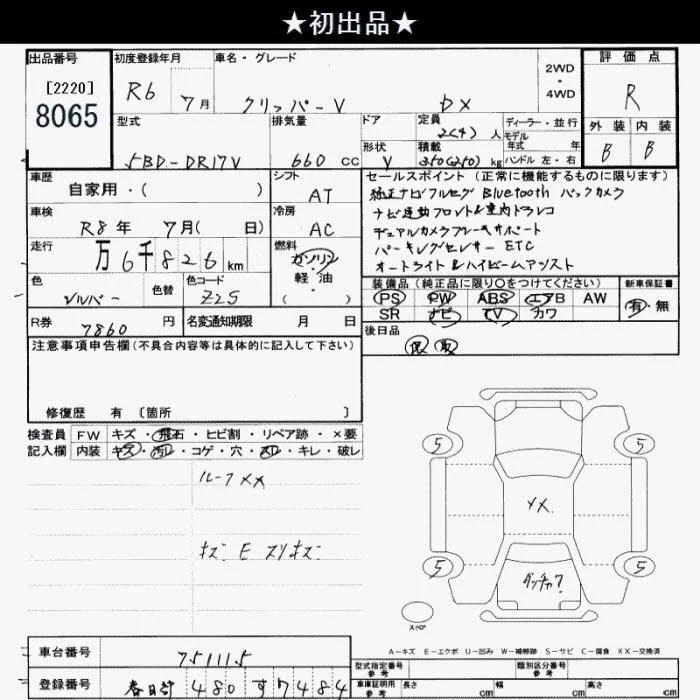 ★初出品★
出品番号
[2220]
8065
初度登録年月
R6 7月
車名・グレード
クリッパーV DX
2WD
・
4WD
評価点
R
外装 内装
B B
型式
5BD-DR17V
排気量
660 cc
ドア
形状
V
定員
2(4) 人
積載
350(250) kg
ディーラー・並行
モデル
年式 年
ハンドル 左・右
車歴
自家用・( )
シフト
AT
車検
R8年 7月( 日)
冷房
AC
走行
万6千826km
燃料
ガソリン
・
軽油
( )
色
シルバー
色替
色コード
Z2S
R券
7860 円
名変通知期限 月 日
セールスポイント (正常に機能するものに限ります)
純正ナビフルセグ Bluetooth バックカメラ
ナビ連動フロント&車内ドラレコ
デュアルカメラブレーキサポート
パーキングセンサー ETC
オートライト&ハイビームアシスト
装備品 (純正品に限り○をつけてください)
PS PW ABS エアB AW
SR ナビ TV カワ
新車保証書
有・無
後日品
保 取
注意事項申告欄(不具合内容等は具体的に記入して下さい)
修復歴 有 〔箇所 〕
検査員
記入欄
FW キズ・飛石・ヒビ割・リペア跡・×要
内装 キズ・汚レ・コゲ・穴・スレ・キレ・破レ
ルーフメメ
キズ E スリキズ
5 5
メメ
5 5
ダッチャ?
スペア
A-キズ E-エクボ U-凹み W-補修跡 S-サビ C-腐食 XX-交換済
車台番号
751115
登録番号
春日部 480 す 7484
型式指定番号
参考
類別区分番号
参考
車庫証明用
参考
長さ cm 幅 cm 高さ cm